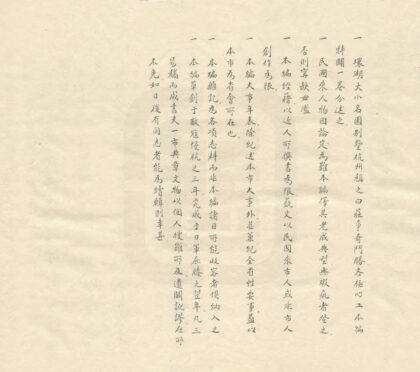 一 環湖大小名園別墅杭州稱之曰莊爭奇鬥勝各極其工本編
特闢一卷分述之
一 民國來人物因論定為難本編僅其老成典型無瑕疵者登之
否則寧缺毋濫
一 本編經籍以近人所撰書為限藝文以民國來市人或求市人
創作為限
一 本編大事年表除紀述本市大事外兼紀全省性要事蓋以
本市為省會所在也
一 本編雜記為各項志料而求本編諸目所能收容者俱納入之
一 本編草創于敵寇侵杭之三年完成于日軍屈膝之翌年凡三
易稿而成書夫一市典章文物以個人獲難所及遺闕訛謬在所
不免如日後有同志者能為增輯則幸甚